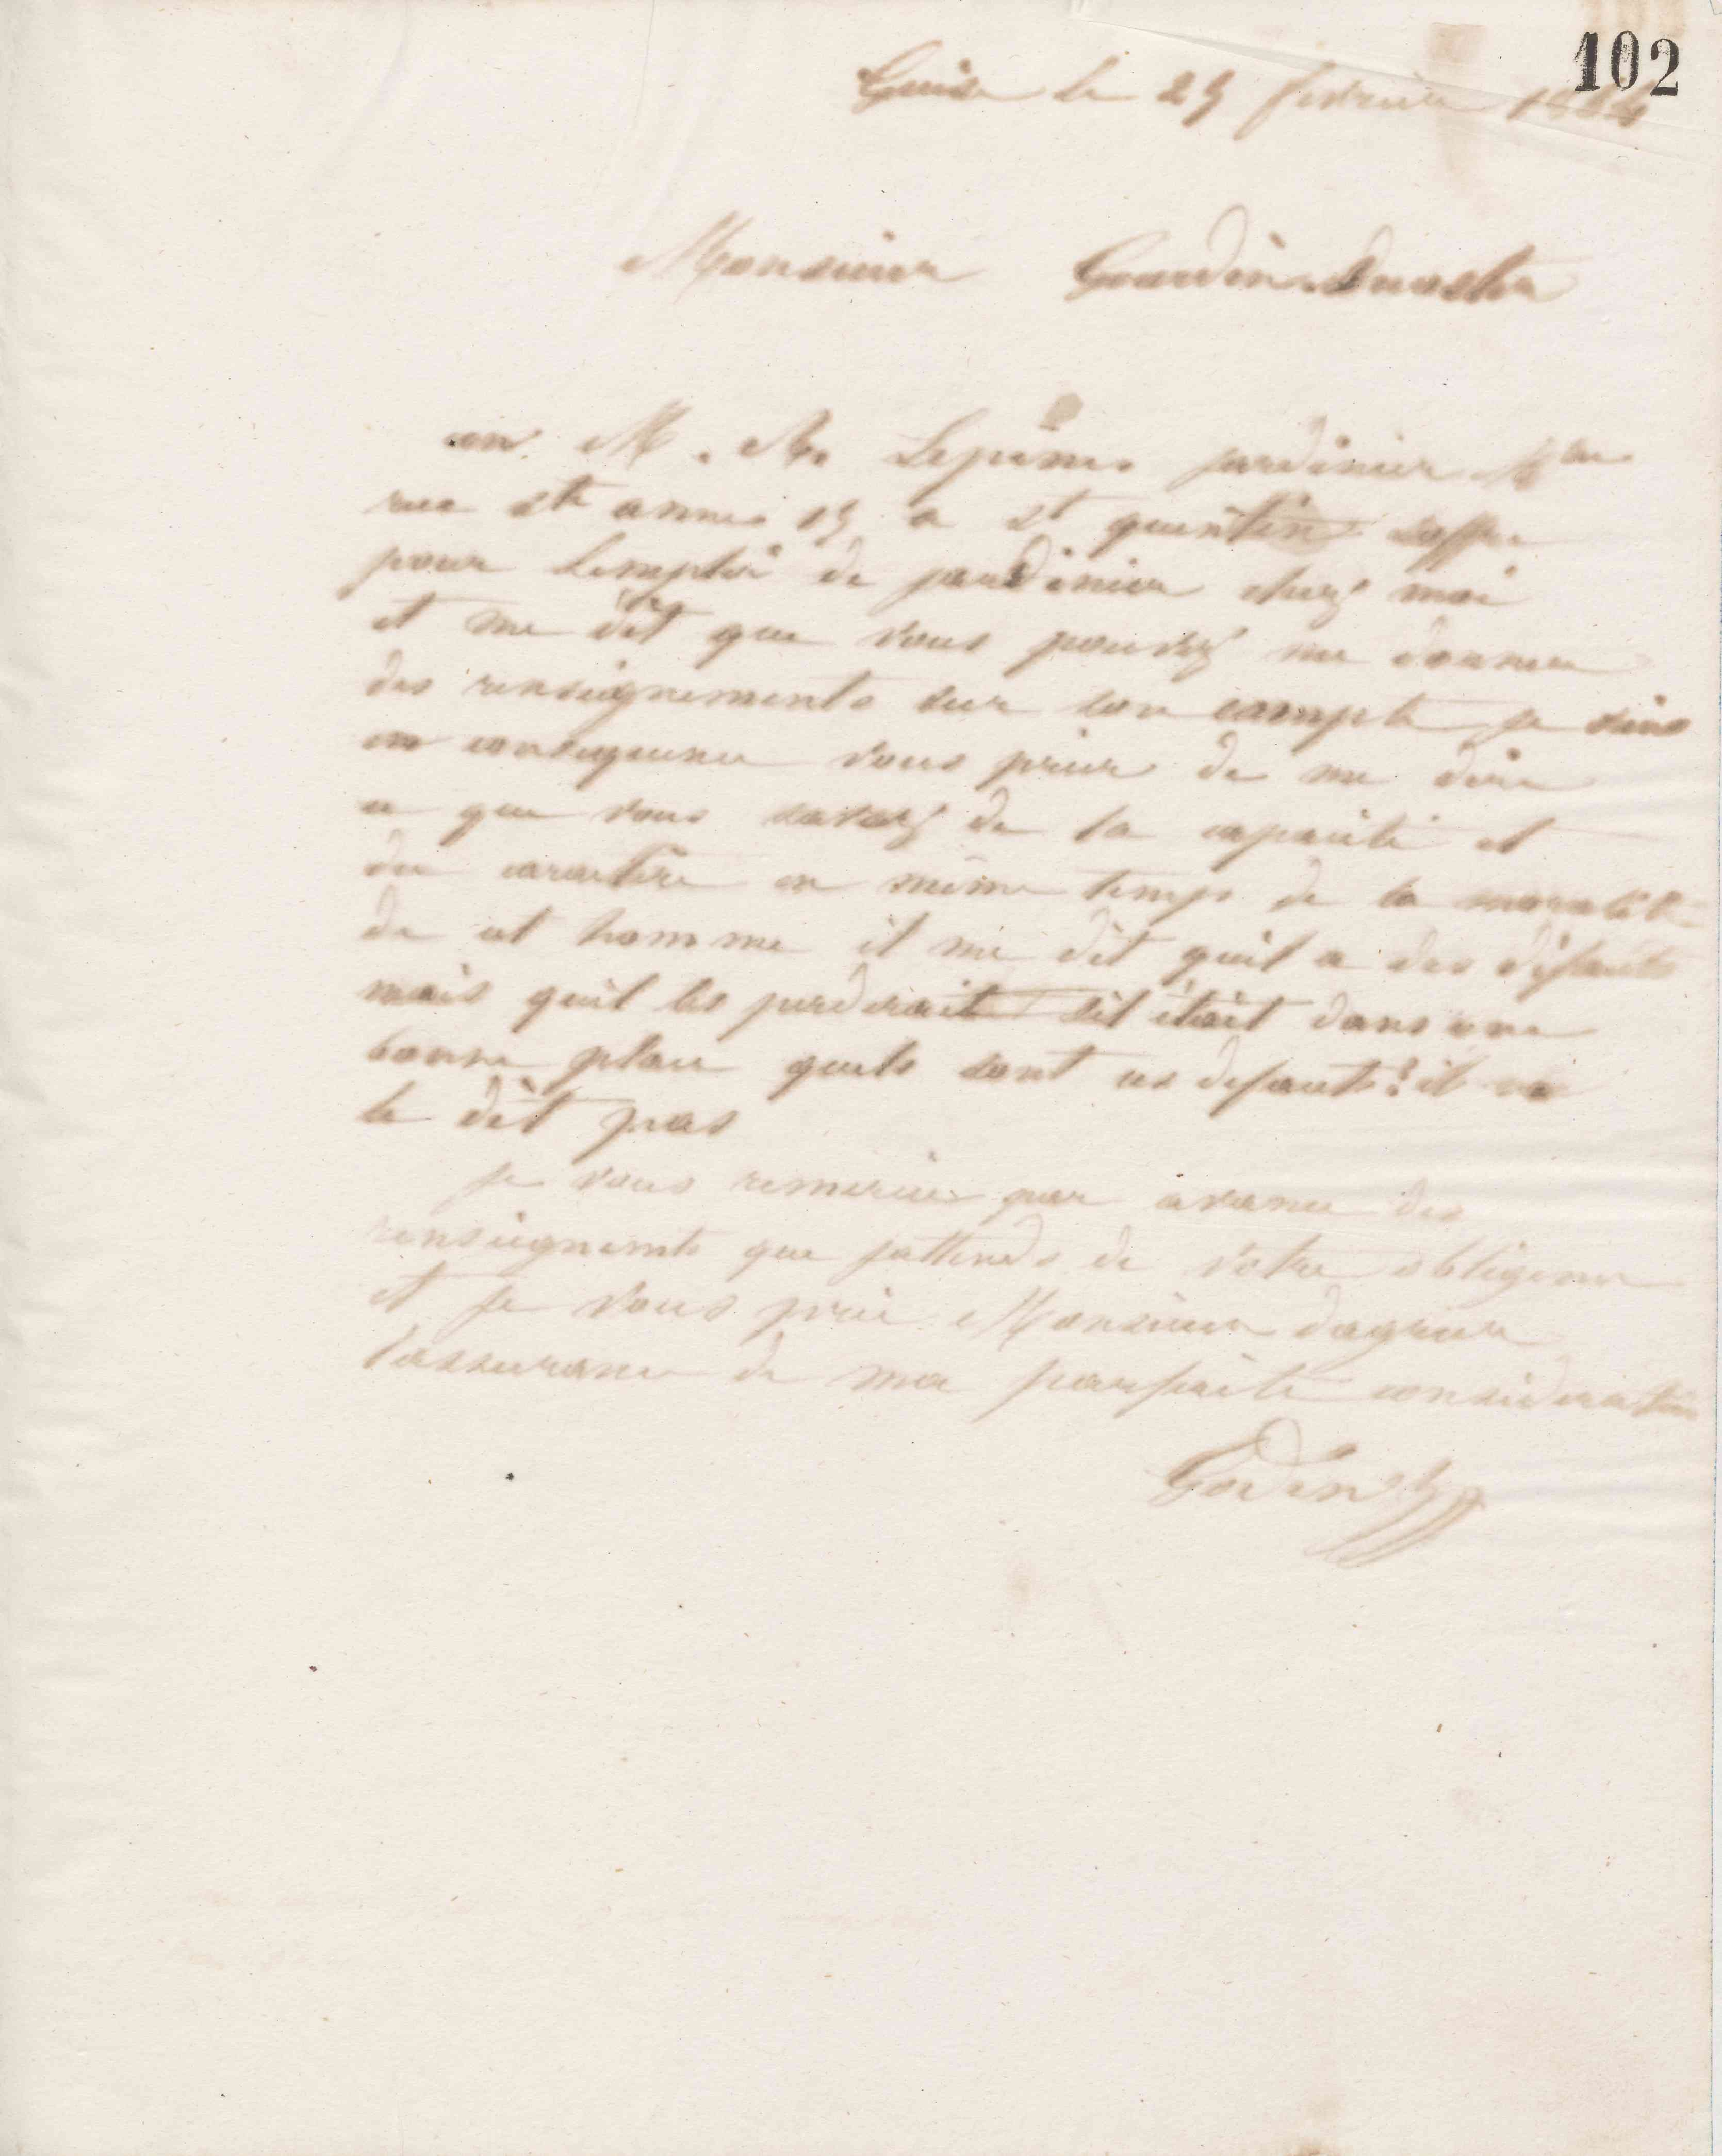 102
Guise le 25 février 1864
Monsieur Gourdin
un M. Lepine jardinier
rue ste anne 15 a st quentin soffre
pour Lemploi de jardinier chez moi
et me dit que vous pouvez me donner
des renseignements sur son compte je viens
en consequence vous prier de me dire
ce que vous savez de la capacité et
du caractère en même temps de la moralité
de cet homme il me dit quil a des défauts
mais quil les perderait sil était dans une
bonne place quels sont ces defauts? il ne
le dit pas
je vous remercie par avance des
renseignements que jattends de votre obligence
et je vous prie Monsieur dagreer
lassurance de ma parfaite consideration
Godin